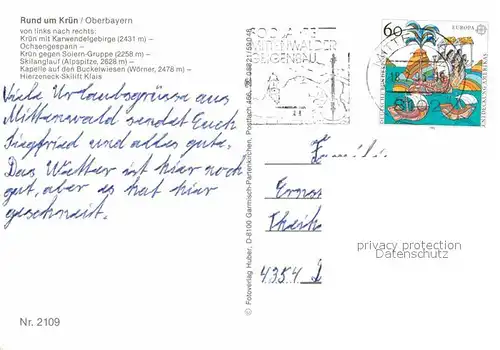 Rund um Krün / Oberbayern
von links nach rechts:
Krün mit Karwendelgebirge (2431 m) –
Ochsengespann –
Krün gegen Soiern-Gruppe (2258 m) –
Skilanglauf (Alpspitze, 2628 m) –
Kapelle auf den Buckelwiesen (Wörner, 2478 m) –
Hierzeneck-Skilift Klais
Viele Urlaubsgrüsse aus
Mittenwald sendet Euch
Siegfried und alles gute.
Das Wetter ist hier noch
gut, aber es hat hier
geschneit.
Nr. 2109
© Fotoverlag Huber, D-8100 Garmisch-Partenkirchen, Postfach 466,
300 JAHRE
MITTENWALDER
GEIGENBAU
60
EUROPA
Familie
4354
privacy protection
Datenschutz